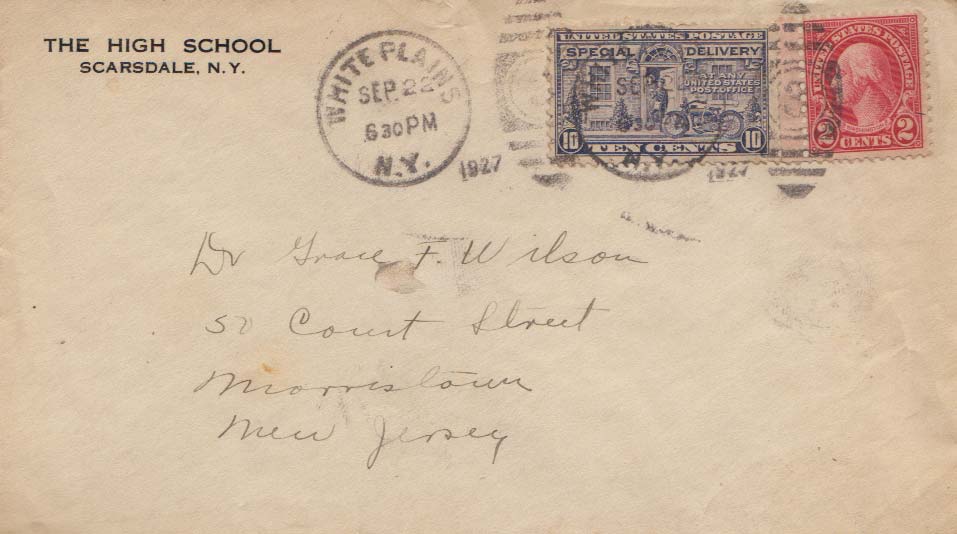 THE HIGH SCHOOL
SCARSDALE, N.Y.
WHITE PLAINS
SEP 22
630 PM
N.Y.
1927
UNITED STATES POSTAGE
SPECIAL DELIVERY
AT ANY
UNITED STATES
POST OFFICE
10 10
TEN CENTS
SEP 22
630 PM
N.Y.
1927
UNITED STATES POSTAGE
WASHINGTON
2 2
CENTS
Dr Grace F. Wilson
50 Court Street
Morristown
New Jersey